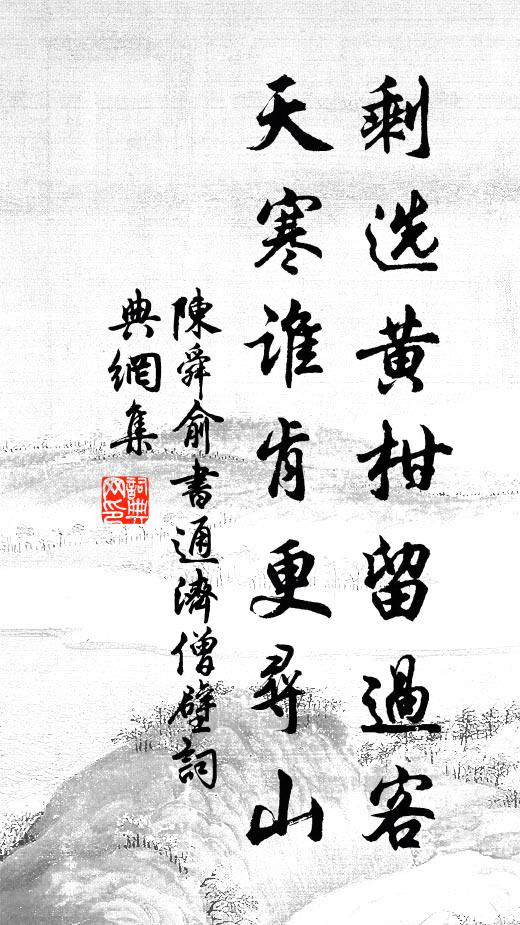 剩选黄柑留過客
天寒谁肯更尋山
陳舜俞書通濟僧壁詞
典網集
詞典
网印